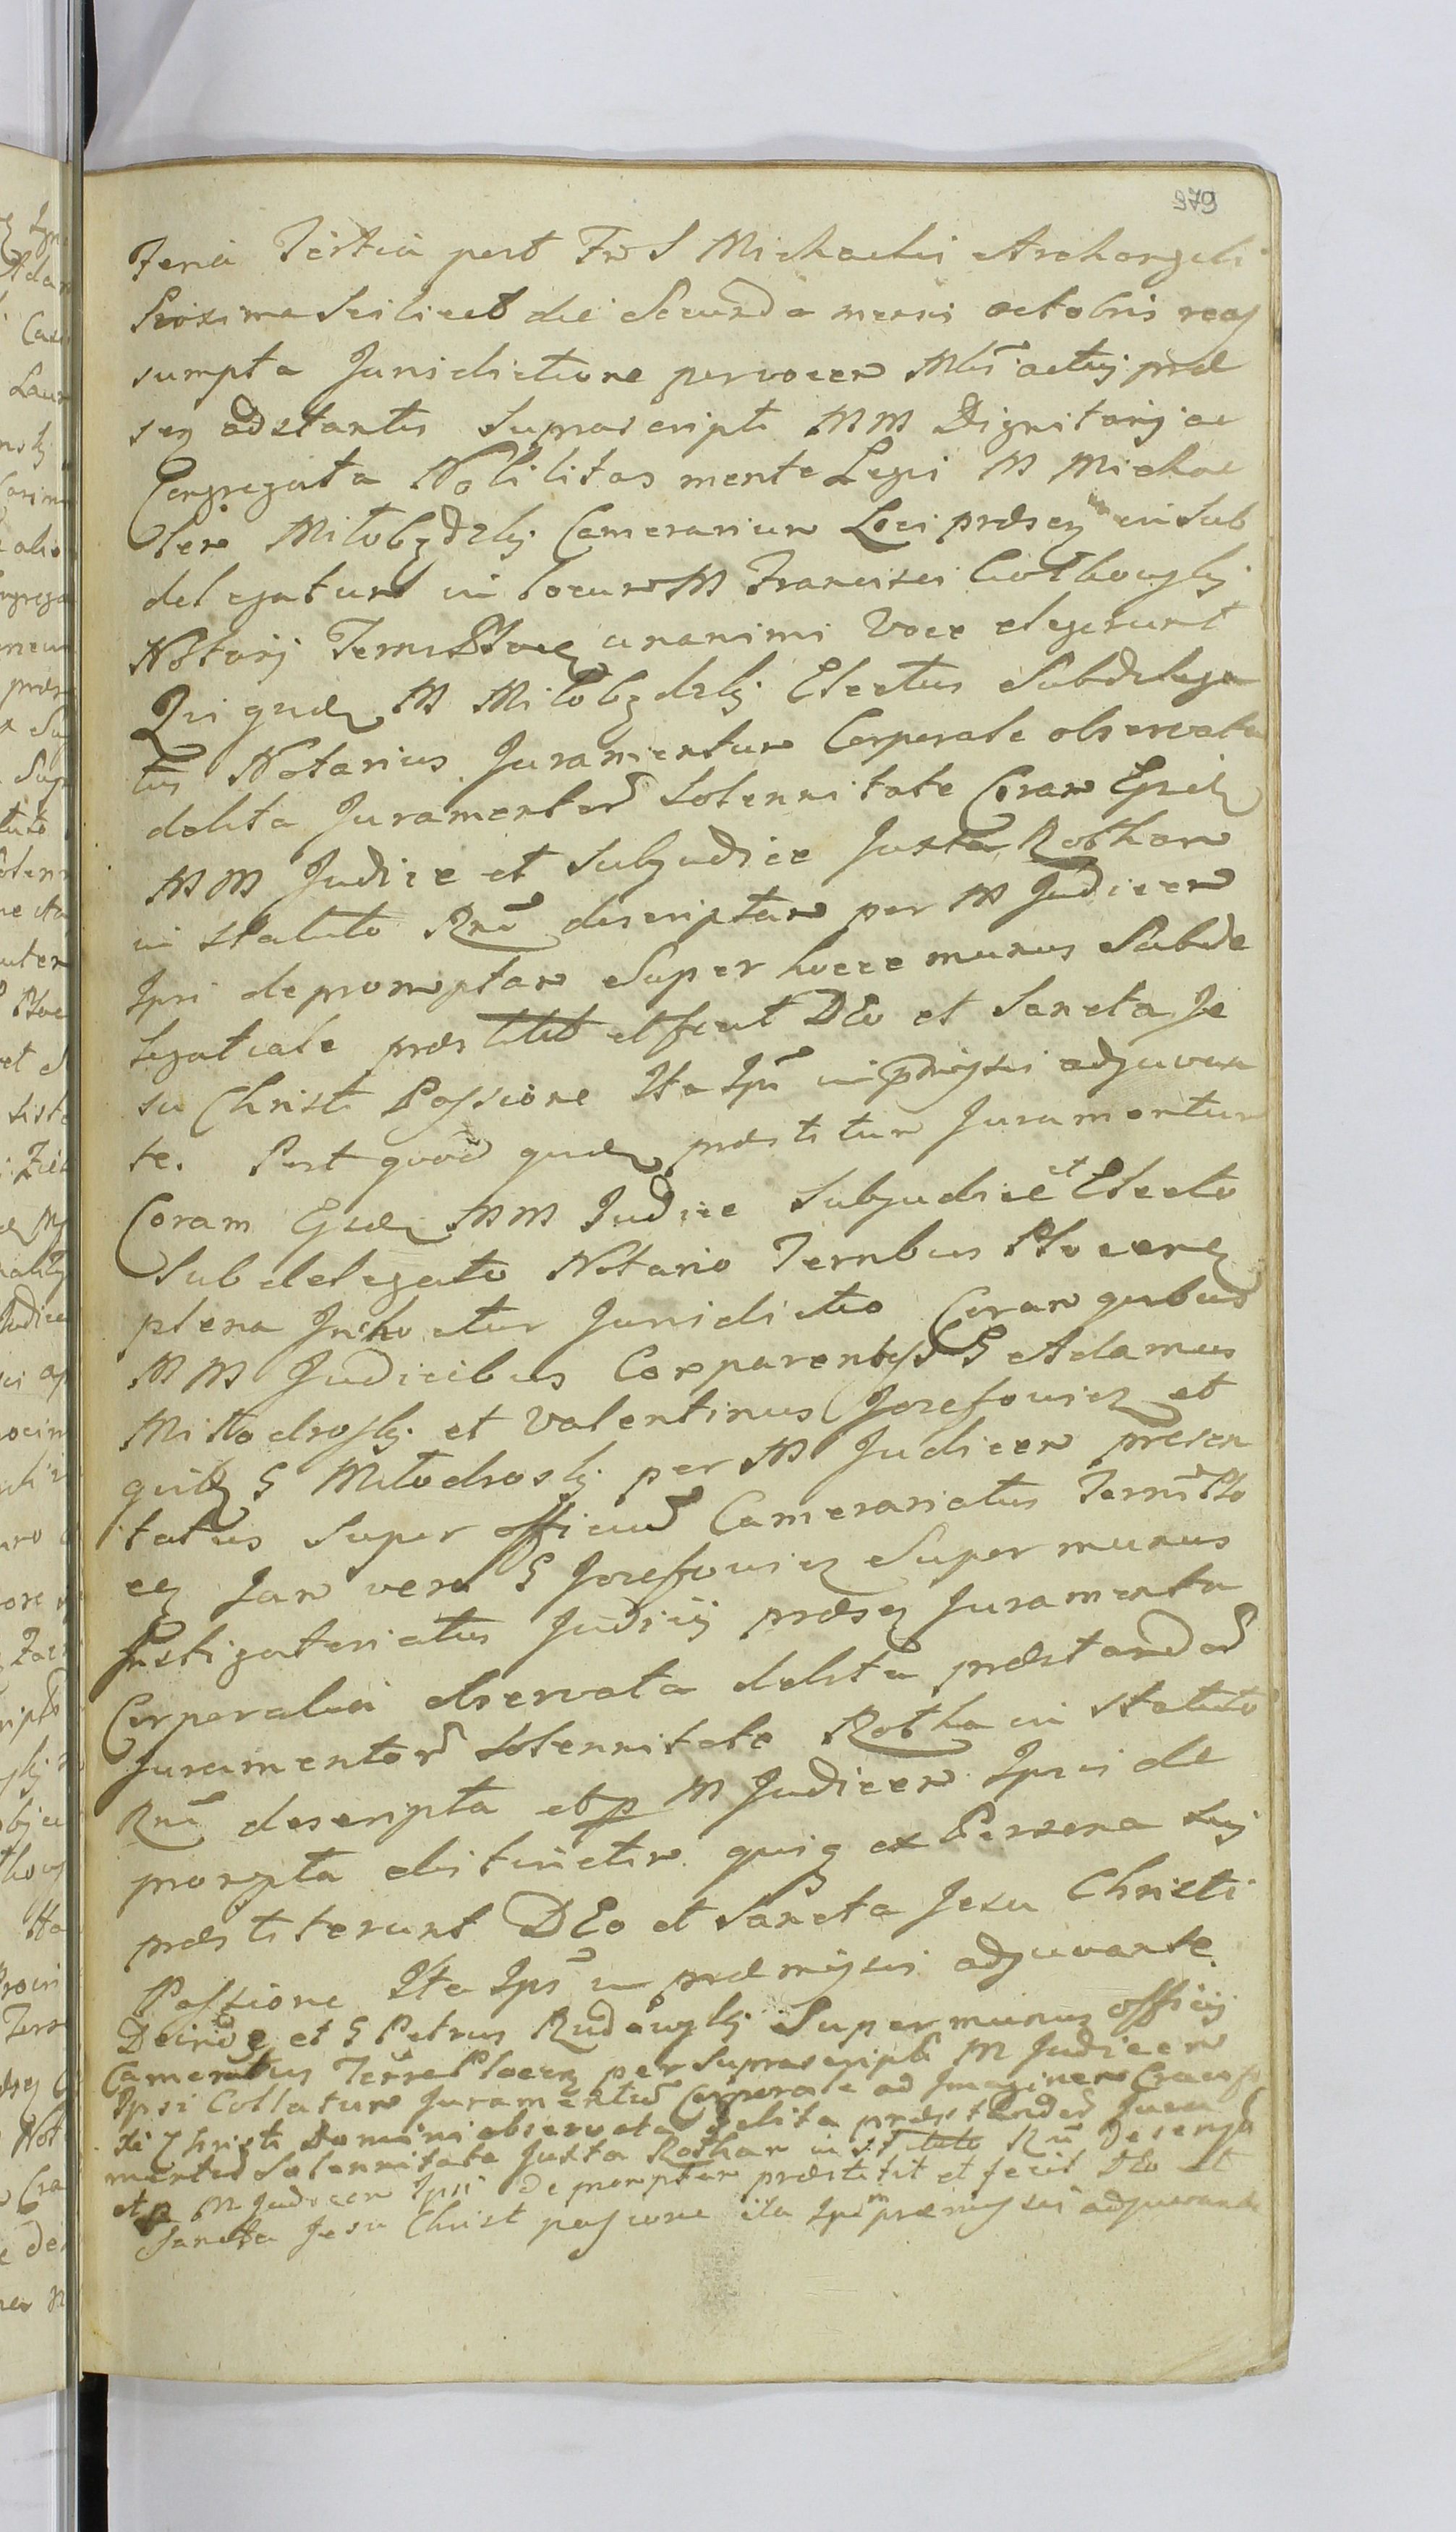 979
Feria Tertia post Fm S Michaelis Archangeli
Proxima Scilicet die Secunda mensis octobris reas
sumpta Jurisdictione per vocem Mlis actus præ
sen adstantis Suprascripti MM Dignitarij ac
Congregata Nobilitas mente Legis M Michae
lem Miłobędzkj Camerarium Loci præsen in Sub
delegatum in locum M Francisci
Notarij Terris Plocen unanimi Voce elegerunt
Qui quidem M Miłobędzkj Electus Subdelega
tus Notarius Juramentum Corporale observata
debita Juramentor Solennitate Coram Ejsdem
MM Judice et Subjudice Juxta Rotham
in Statuto Rni descriptam per M Judicem
Ipsi depromptam Super hocce munus Subde
legatiale præstitit et fecit DEo et Sancta Je
su Christi Passione Ita Ipm in præmissis adjuvan
te. Post quod quidem præstitum Juramentum
Coram Ejsdem MM Judice Subjudice et Electo
Subdelegato Notario Terribus Plocens
plena Inchoatur Jurisdictio Coram quibus
MM Judicibus Comparentes G Adamus
Młodroskj et Valentinus Jozefowicz et
quidem G Młodroskj per M Judicem presen
tatus Super officium Camerariatus Terris Plo
cen Jam vero G Jozefowicz Super munus
Instigatoriatus Judicij præsen Juramenta
Corporalia observata debita præstandor
Juramentor Solennitate Rotha in Statuto
Rni descripta et p M Judicem Ipsis de
prompta distinctim quisq ex Persona Sua
præstiterunt DEo et Sancta Jesu Christi
Passione Ita Ipsis in præmissis adjuvante.
Deinde et G Petrus Rudowskj Super munus officij
Camerarius Terræ Plocen per Suprascriptum M Judicem
Ipsi Collatum Juramentum Corporale ad Imaginem Crucifi
xi Christi Domini observata debita præstandor Jura
mentor Solennitate Juxta Rotham in Statuto Rni Descript
et p M Judicem Ipsi depromptam præstitit et fecit DEo et
Sancta Jesu Christi passione ita Ipm præmissis adjuvante